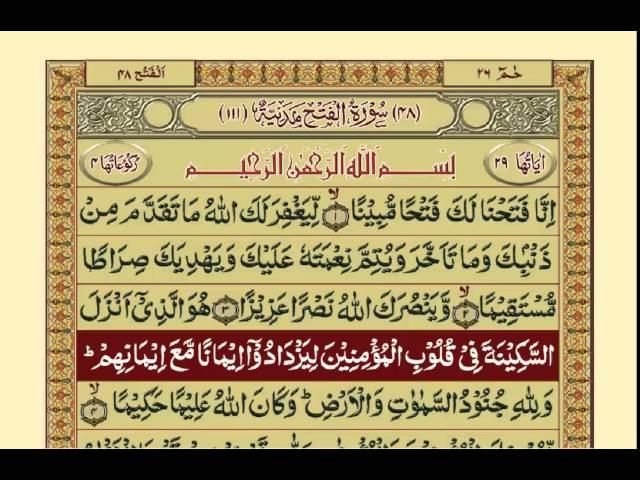 حٰمٓ ٢٦
اَلْفَتْح ٤٨
(٤٨) سُوْرَةُ الْفَتْحِ مَدَنِيَّةٌ (١١١)
اٰيَاتُهَا ٢٩
بِسْمِ اللّٰهِ الرَّحْمٰنِ الرَّحِيْمِ
رُكُوْعَاتُهَا ٤
اِنَّا فَتَحْنَا لَكَ فَتْحًا مُّبِيْنًا ۙ﴿١﴾ لِّيَغْفِرَ لَكَ اللّٰهُ مَا تَقَدَّمَ مِنْ
ذَنْۢبِكَ وَمَا تَاَخَّرَ وَيُتِمَّ نِعْمَتَهٗ عَلَيْكَ وَيَهْدِيَكَ صِرَاطًا
مُّسْتَقِيْمًا ۙ﴿٢﴾ وَّيَنْصُرَكَ اللّٰهُ نَصْرًا عَزِيْزًا ﴿٣﴾ هُوَ الَّذِيْٓ اَنْزَلَ
السَّكِيْنَةَ فِيْ قُلُوْبِ الْمُؤْمِنِيْنَ لِيَزْدَادُوْٓا اِيْمَانًا مَّعَ اِيْمَانِهِمْ ؕ
وَلِلّٰهِ جُنُوْدُ السَّمٰوٰتِ وَالْاَرْضِ ؕ وَكَانَ اللّٰهُ عَلِيْمًا حَكِيْمًا ۙ﴿٤﴾